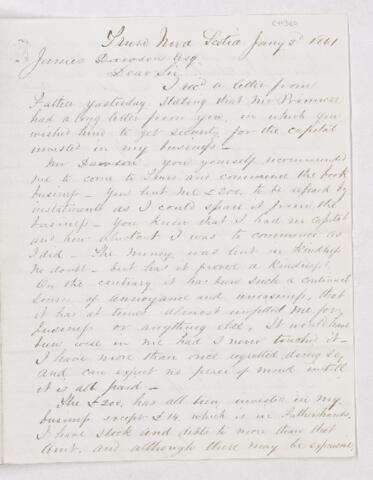 Truro Nova Scotia Jany 2d 1861
James Dawson Esq
Dear Sir
I recd a letter from
Father yesterday stating that Mr
had a long letter from you, in which you
wished him to get security for the capital
invested in my business -
Mr Dawson - you yourself recommended
me to come to Truro and commence the book
business - You lent me £200. to be repaid by
instalments as I could spare it from the
business - You knew that I had no capital
and how reluctant I was to commence as
I did - The money was lent in kindness
no doubt - but has it proved a kindness?
On the contrary it has been such a continual
source of annoyance and uneasiness, that
it has at times almost unfitted me for
business or anything else. It would have
been wise in me had I never touched it -
I have more than once regretted doing so,
and can expect no peace of mind untill
it is all paid -
The £200. has all been invested in my
business except £14. which is in Fathers hands.
I have stock and debts to more than that
amt. and although there may be